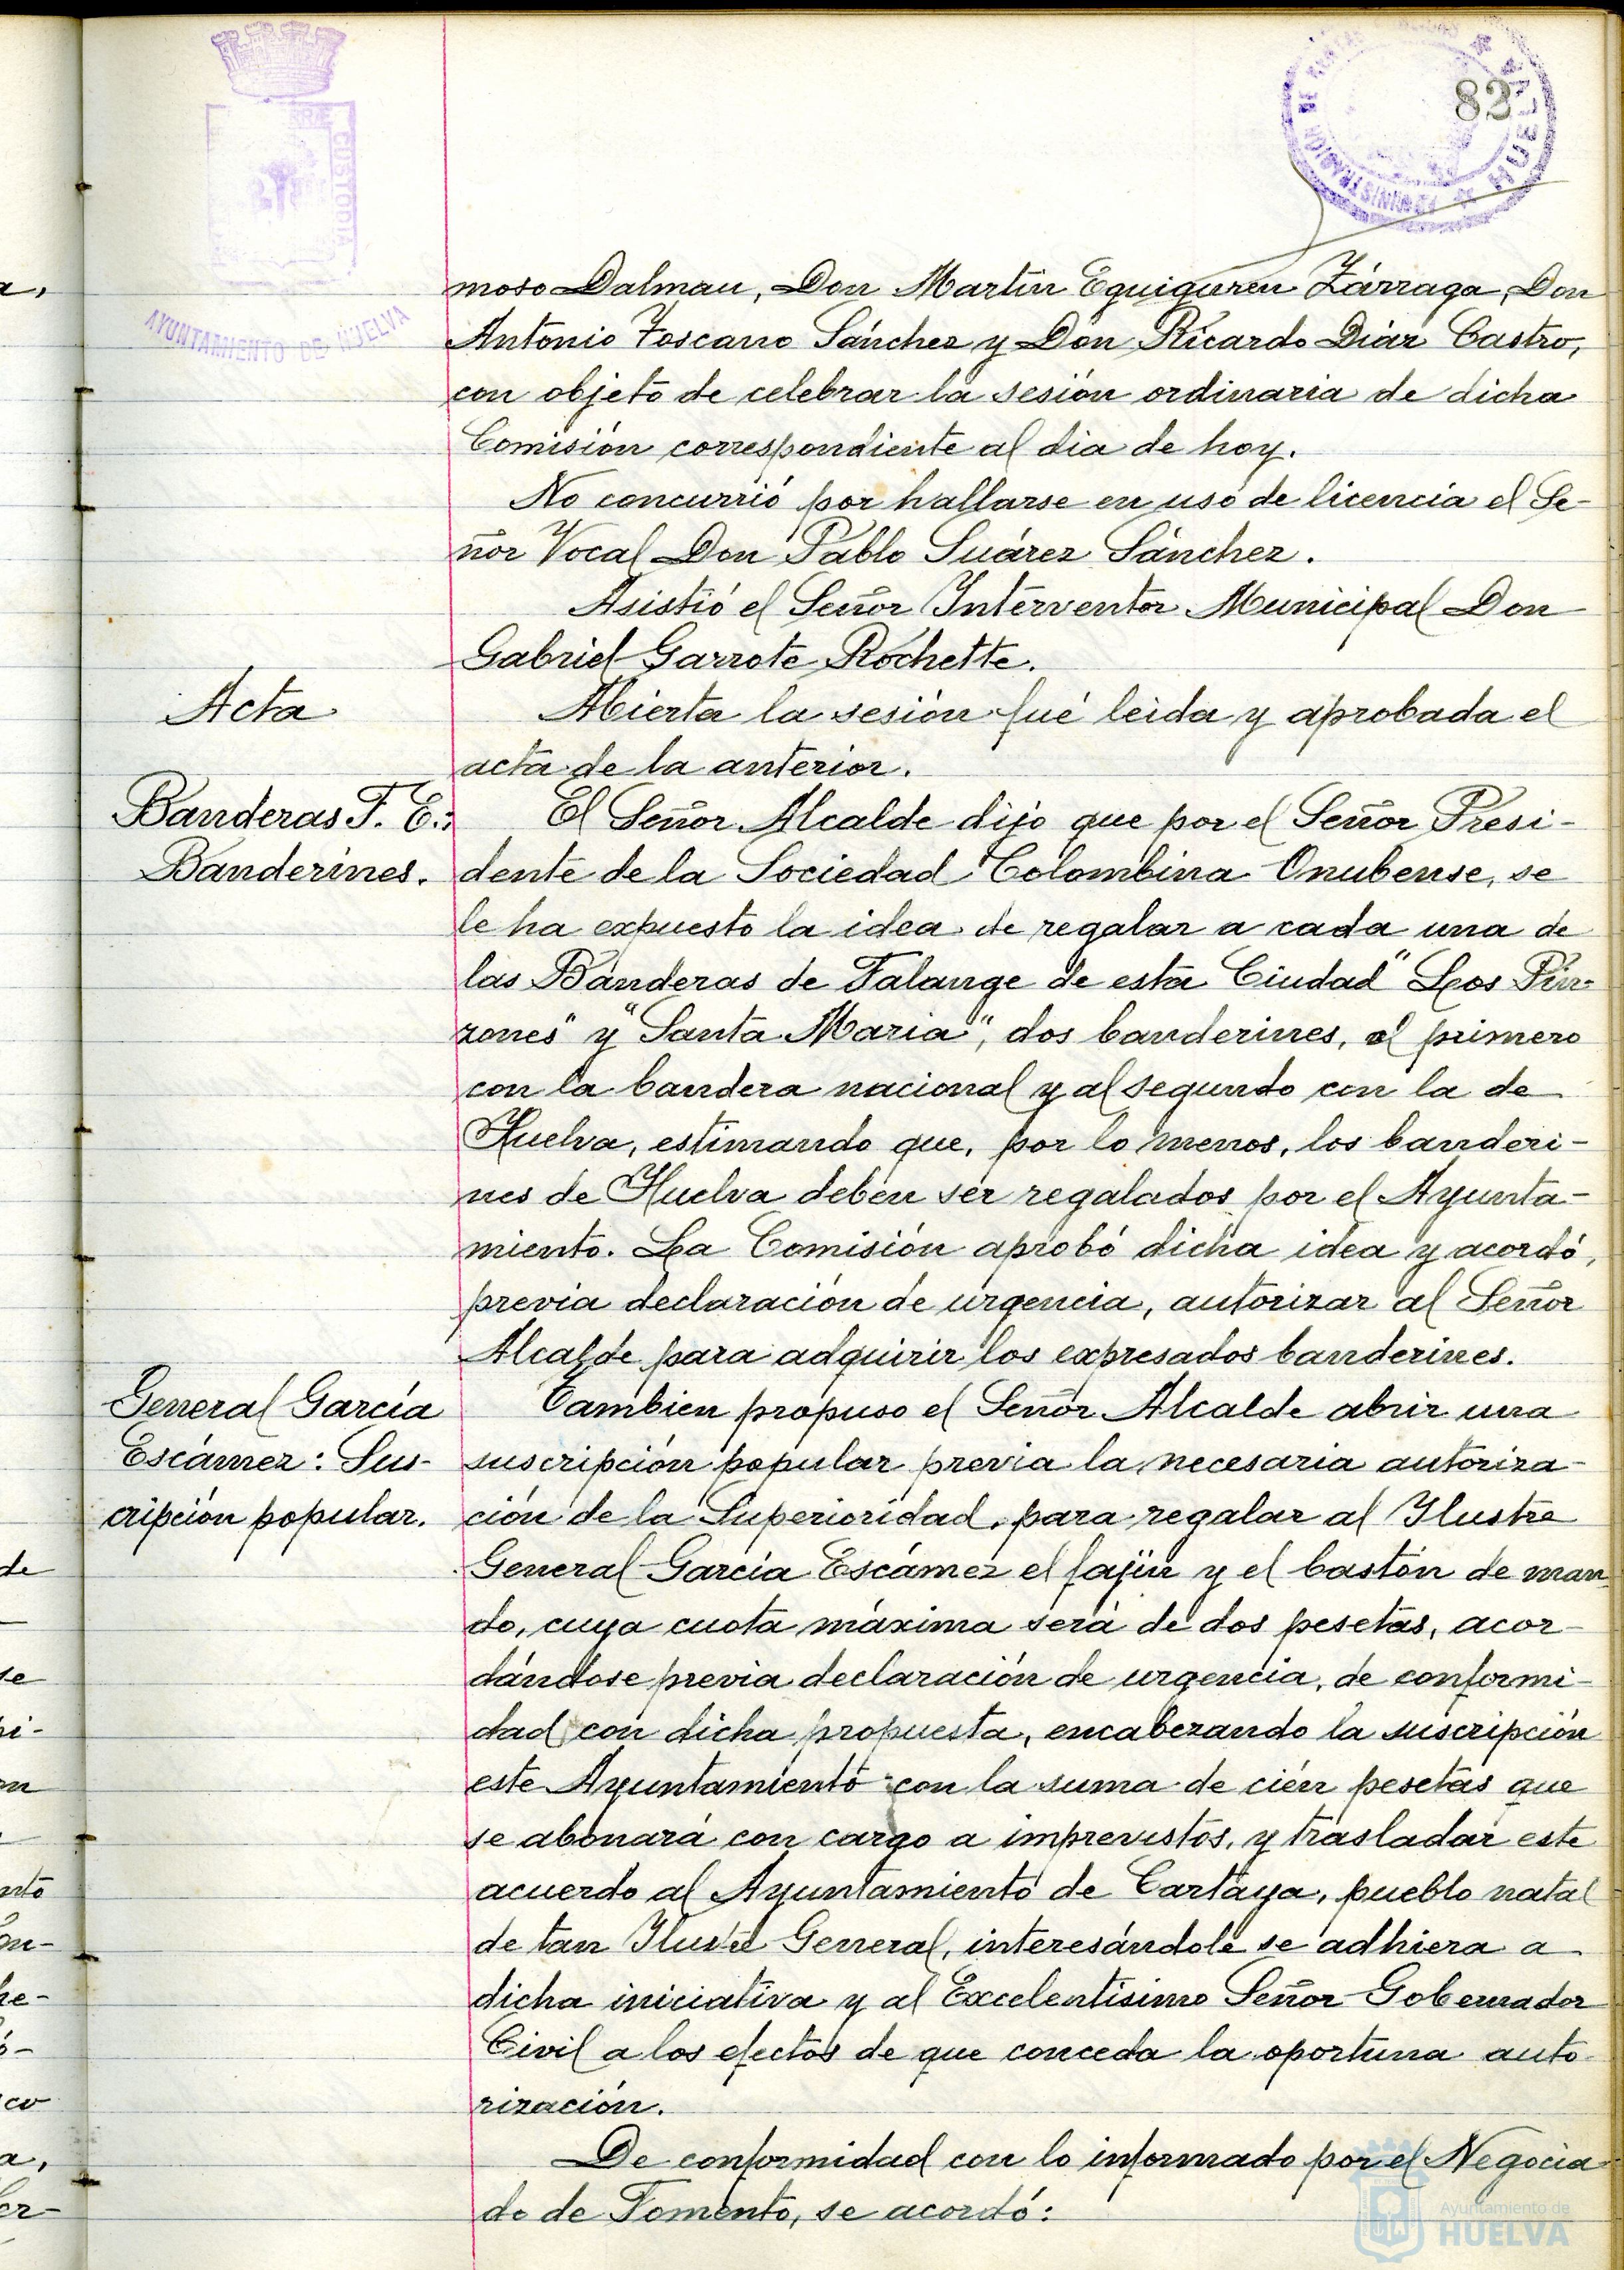 82
CUSTODIA
AYUNTAMIENTO DE HUELVA
HUELVA
moso Dalmau, Don Martín Eguiguren Zárraga, Don
Antonio Toscano Sánchez y Don Ricardo Diáz Castro,
con objeto de celebrar la sesión ordinaria de dicha
Comisión correspondiente al dia de hoy.
No concurrió por hallarse en uso de licencia el Se-
ñor Vocal Don Pablo Suárez Sánchez.
Asistió el Señor Interventor Municipal Don
Gabriel Garrote Rochette.
Acta
Abierta la sesión fué leida y aprobada el
acta de la anterior.
Banderas F. E.:
Banderines.
El Señor Alcalde dijo que por el Señor Presi-
dente de la Sociedad Colombina Onubense, se
le ha expuesto la idea de regalar a cada una de
las Banderas de Falange de esta Ciudad "Los Pin-
zones" y "Santa Maria", dos banderines, el primero
con la bandera nacional y al segundo con la de
Huelva, estimando que, por lo menos, los banderi-
nes de Huelva deben ser regalados por el Ayunta-
miento. La Comisión aprobó dicha idea y acordó,
previa declaración de urgencia, autorizar al Señor
Alcalde para adquirir los expresados banderines.
General García
Escámez: Sus-
cripción popular.
Tambien propuso el Señor Alcalde abrir una
suscripción popular previa la necesaria autoriza-
ción de la Superioridad, para regalar al Ilustre
General García Escámez el fajín y el bastón de man
do, cuya cuota máxima será de dos pesetas, acor-
dándose previa declaración de urgencia, de conformi-
dad con dicha propuesta, encabezando la suscripción
este Ayuntamiento con la suma de cien pesetas que
se abonará con cargo a imprevistos, y trasladar este
acuerdo al Ayuntamiento de Cartaya, pueblo natal
de tan Ilustre General, interesándole se adhiera a
dicha iniciativa y al Excelentísimo Señor Gobernador
Civil a los efectos de que conceda la oportuna auto-
rización.
De conformidad con lo informado por el Negocia-
do de Fomento, se acordó:
Ayuntamiento de
HUELVA